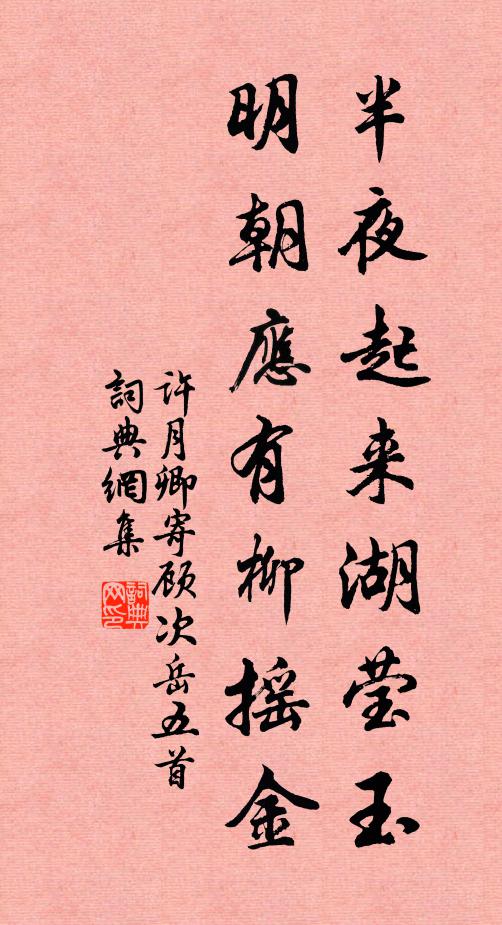 半夜起来湖莹玉
明朝應有柳摇金
许月卿寄顾次岳五首
詞典網集
詞典网印